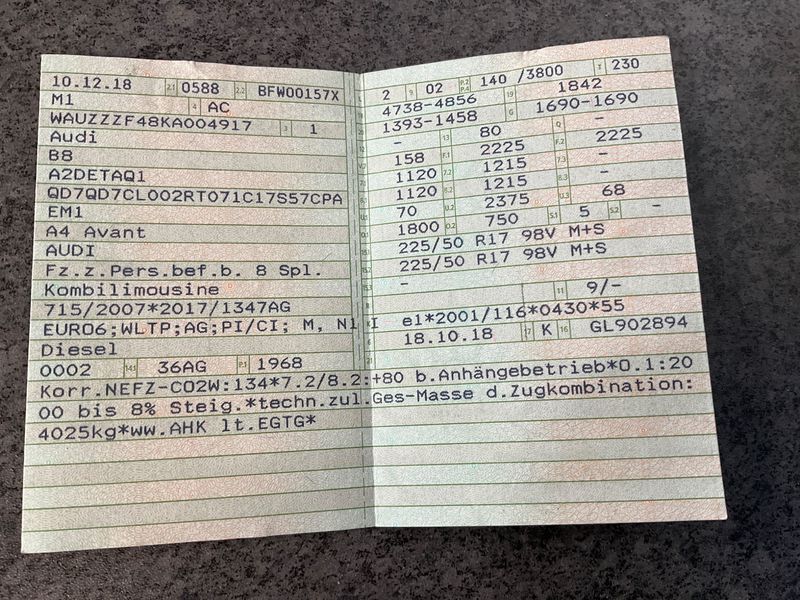 10.12.18 2.1 0588 2.2 BFW00157X
M1 4 AC
WAUZZZF48KA004917 3 1
Audi
B8
A2DETAQ1
QD7QD7CL002RT071C17S57CPA
EM1
A4 Avant
AUDI
Fz.z.Pers.bef.b. 8 Spl.
Kombilimousine
715/2007*2017/1347AG
EURO6;WLTP;AG;PI/CI; M, N1 I
Diesel
0002 14.1 36AG P.1 1968
2 9 02 P.2 P.4 140 /3800 T 230
4738-4856 19 1842
1393-1458 G 1690-1690
- 13 80 Q -
158 F.1 2225 F.2 2225
1120 7.2 1215 7.3 -
1120 8.2 1215 8.3 -
70 U.2 2375 U.3 68
1800 O.2 750 S.1 5 S.2 -
225/50 R17 98V M+S
225/50 R17 98V M+S
-
11 9/-
e1*2001/116*0430*55
18.10.18 17 K 16 GL902894
Korr.NEFZ-CO2W:134*7.2/8.2:+80 b.Anhängebetrieb*0.1:20
00 bis 8% Steig.*techn.zul.Ges-Masse d.Zugkombination:
4025kg*ww.AHK lt.EGTG*